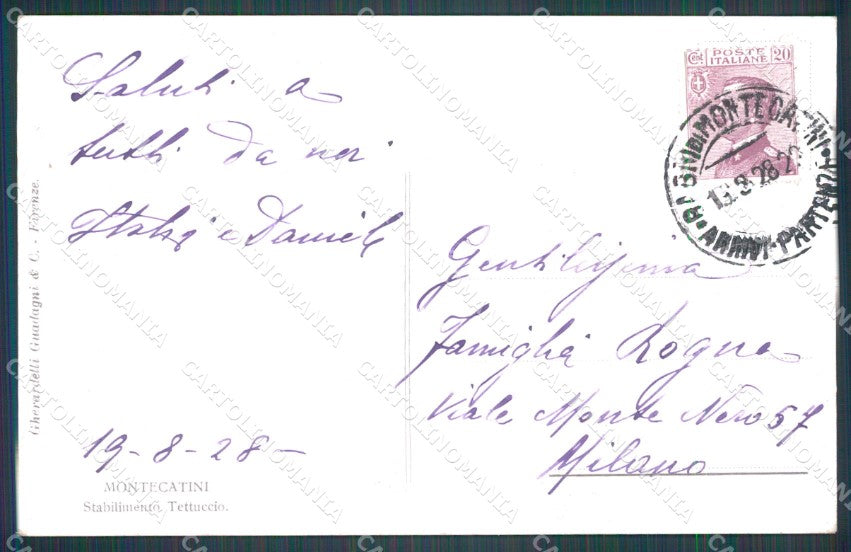 Saluti a
tutti da noi
Italia e Daniele
19-8-28-
MONTECATINI
Stabilimento Tettuccio.
Gherardelli Guadagni & C. - Firenze.
Cent POSTE ITALIANE 20
BAGNI DI MONTECATINI
ARRIVI-PARTENZA
Gentilissima
Famiglia Rogna
Viale Monte Nero 57
Milano
CARTOLINOMANIA